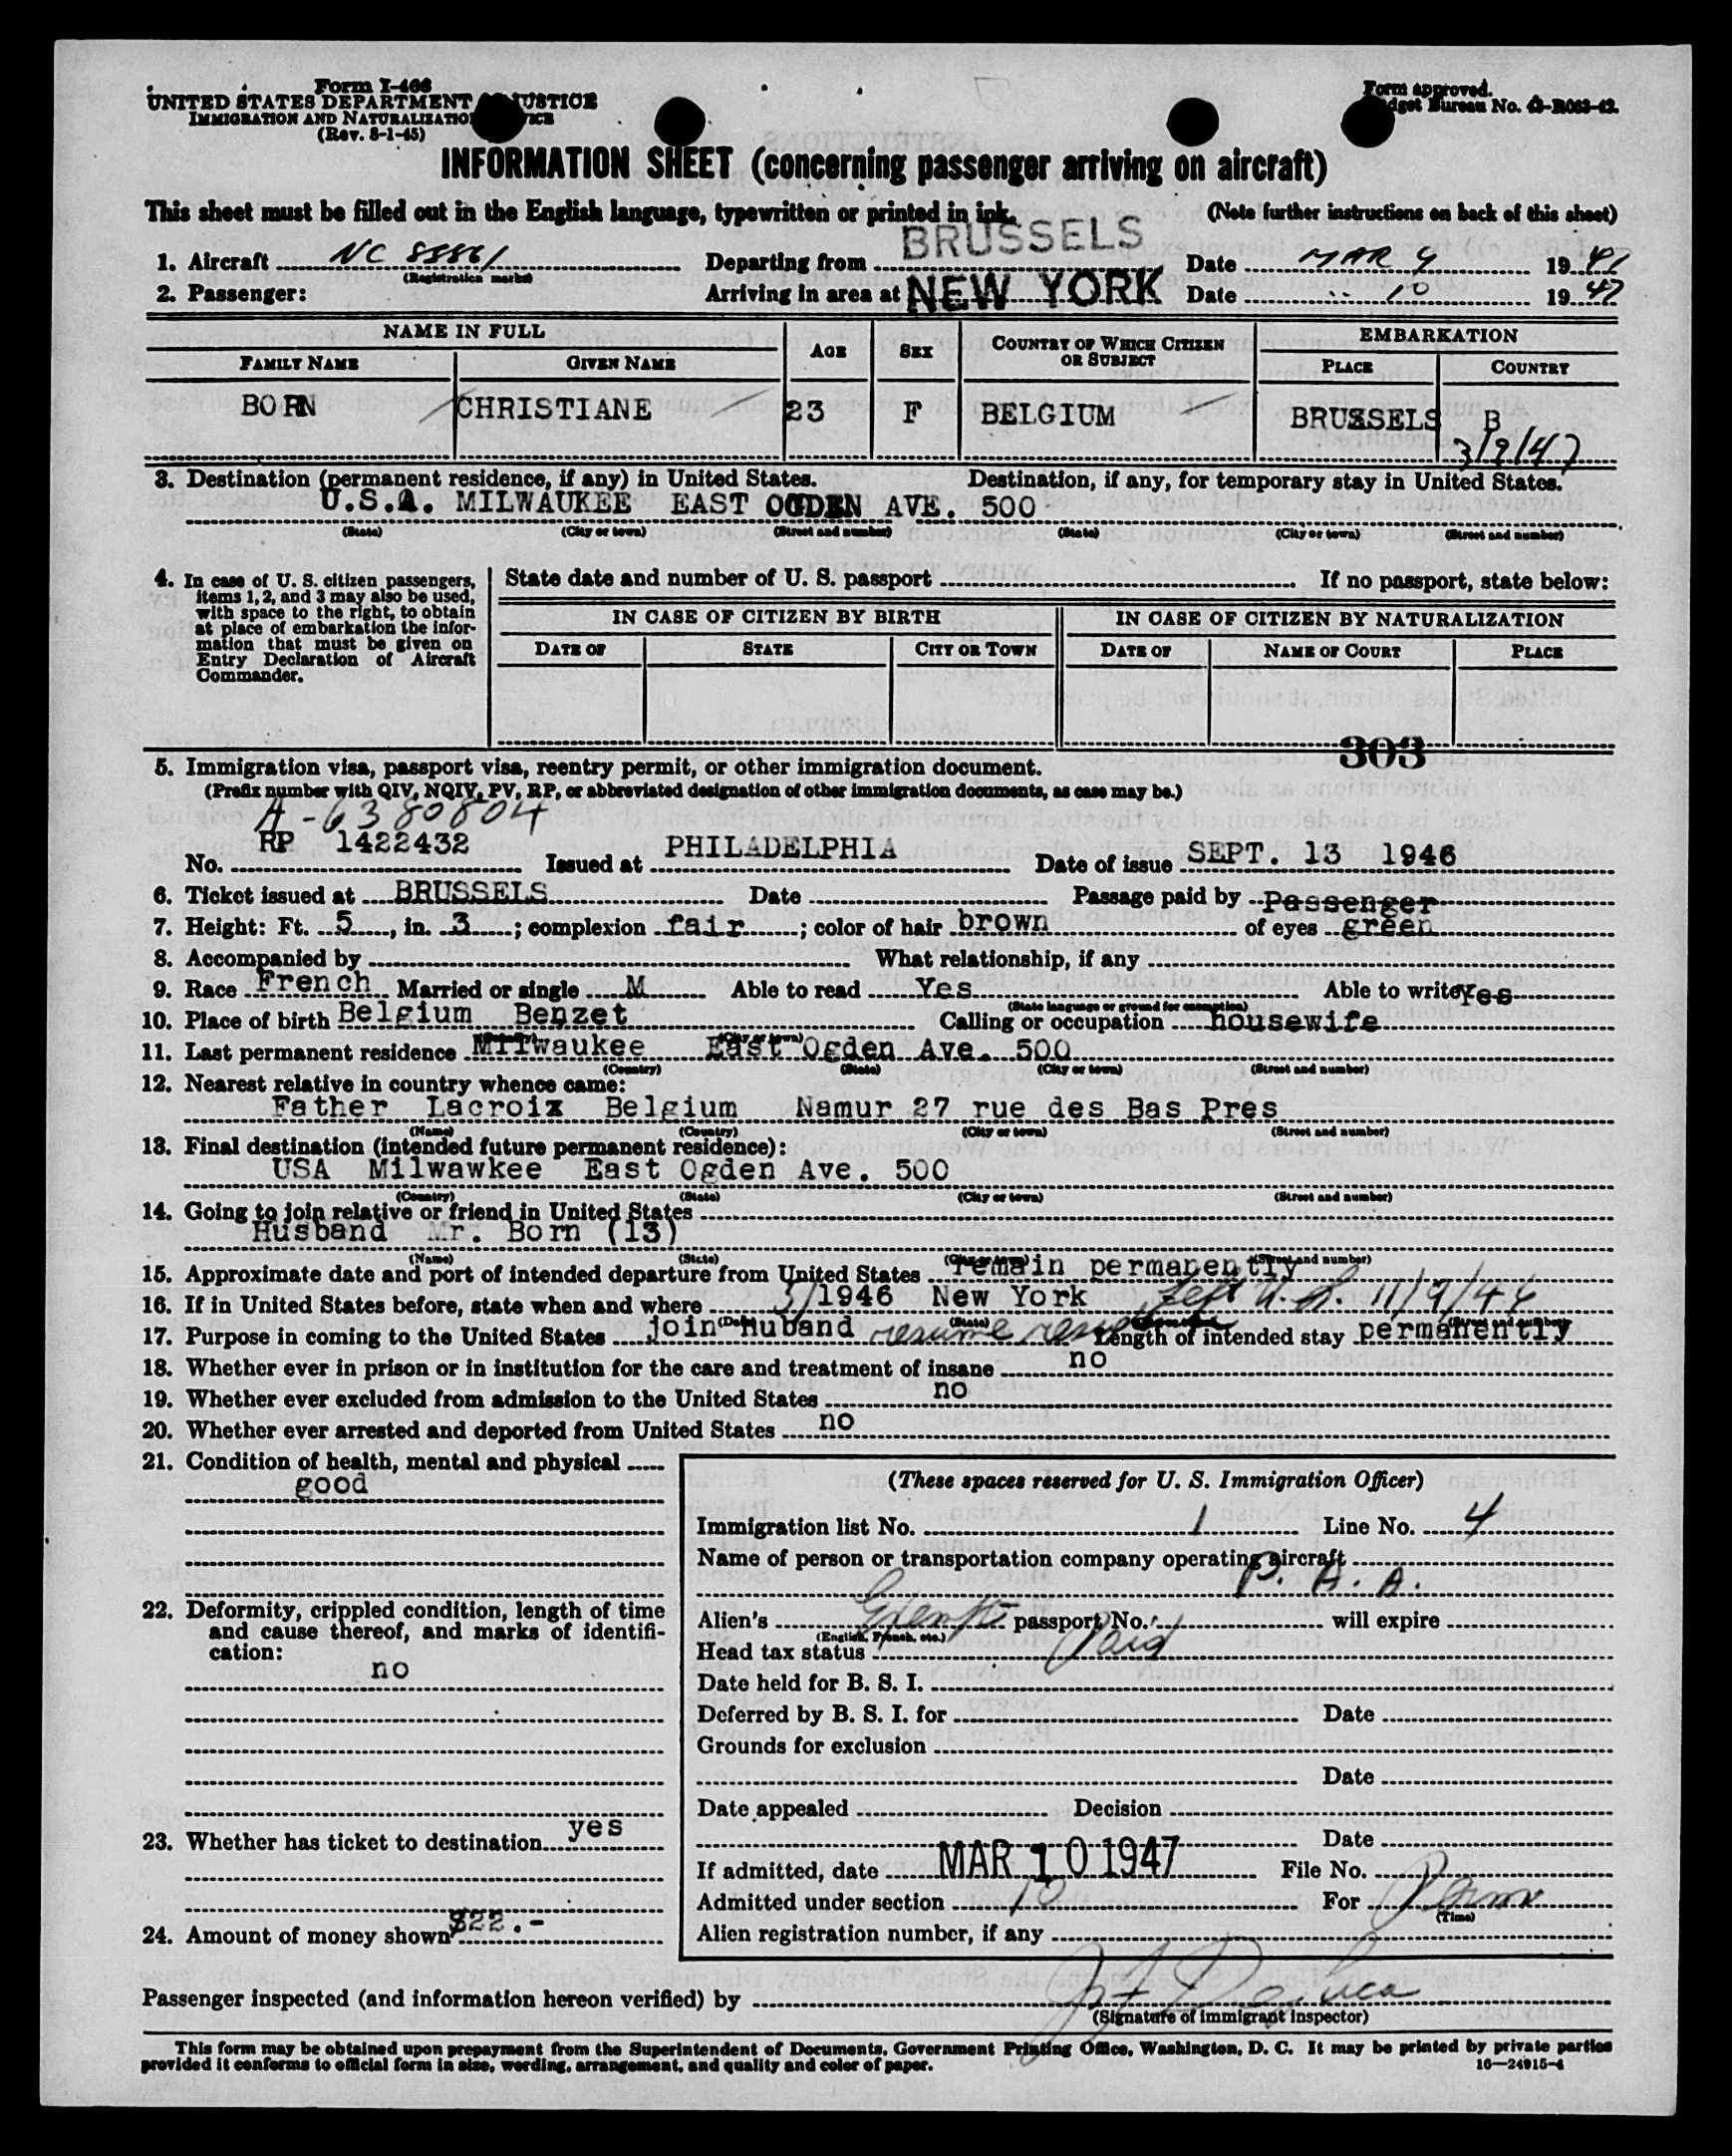 Form I-466
UNITED STATES DEPARTMENT OF JUSTICE
IMMIGRATION AND NATURALIZATION SERVICE
(Rev. 8-1-45)
Form approved.
Budget Bureau No. 43-R063-42.
INFORMATION SHEET (concerning passenger arriving on aircraft)
This sheet must be filled out in the English language, typewritten or printed in ink. (Note further instructions on back of this sheet)
1. Aircraft NC 88861 Departing from BRUSSELS Date MAR 9 1947
(Registration marks)
2. Passenger: Arriving in area at NEW YORK Date " 10 1947
NAME IN FULL AGE SEX COUNTRY OF WHICH CITIZEN OR SUBJECT EMBARKATION
FAMILY NAME GIVEN NAME PLACE COUNTRY
BORN CHRISTIANE 23 F BELGIUM BRUSSELS B
3/9/47
3. Destination (permanent residence, if any) in United States. Destination, if any, for temporary stay in United States.
U.S.A. MILWAUKEE EAST OGDEN AVE. 500
(State) (City or town) (Street and number) (State) (City or town) (Street and number)
4. In case of U. S. citizen passengers, items 1, 2, and 3 may also be used, with space to the right, to obtain at place of embarkation the information that must be given on Entry Declaration of Aircraft Commander.
State date and number of U. S. passport If no passport, state below:
IN CASE OF CITIZEN BY BIRTH IN CASE OF CITIZEN BY NATURALIZATION
DATE OF STATE CITY OR TOWN DATE OF NAME OF COURT PLACE
303
5. Immigration visa, passport visa, reentry permit, or other immigration document.
(Prefix number with QIV, NQIV, PV, RP, or abbreviated designation of other immigration documents, as case may be.)
A-6380804
No. RP 1422432 Issued at PHILADELPHIA Date of issue SEPT. 13 1946
6. Ticket issued at BRUSSELS Date Passage paid by Passenger
7. Height: Ft. 5, in. 3; complexion fair; color of hair brown of eyes green
8. Accompanied by What relationship, if any
9. Race French Married or single M Able to read Yes Able to write Yes
(State language or ground for exemption)
10. Place of birth Belgium Benzet Calling or occupation housewife
(Country) (City or town)
11. Last permanent residence Milwaukee East Ogden Ave. 500
(Country) (State) (City or town) (Street and number)
12. Nearest relative in country whence came:
Father Lacroix Belgium Namur 27 rue des Bas Pres
(Name) (Country) (City or town) (Street and number)
13. Final destination (intended future permanent residence):
USA Milwawkee East Ogden Ave. 500
(Country) (State) (City or town) (Street and number)
14. Going to join relative or friend in United States
Husband Mr. Born (13)
(Name) (State) (City or town) (Street and number)
15. Approximate date and port of intended departure from United States remain permanently
16. If in United States before, state when and where 3/1946 New York Left U.S. 11/9/46
17. Purpose in coming to the United States join Huband resume Length of intended stay permanently
18. Whether ever in prison or in institution for the care and treatment of insane no
19. Whether ever excluded from admission to the United States no
20. Whether ever arrested and deported from United States no
21. Condition of health, mental and physical
good
22. Deformity, crippled condition, length of time and cause thereof, and marks of identification:
no
23. Whether has ticket to destination yes
24. Amount of money shown $22.-
(These spaces reserved for U. S. Immigration Officer)
Immigration list No. 1 Line No. 4
Name of person or transportation company operating aircraft
P. A. A.
Alien's Exempt passport No. will expire
(English, French, etc.)
Head tax status Paid
Date held for B. S. I.
Deferred by B. S. I. for Date
Grounds for exclusion
Date
Date appealed Decision
Date
If admitted, date MAR 10 1947 File No.
Admitted under section 10 For Perm
(Time)
Alien registration number, if any
Passenger inspected (and information hereon verified) by
(Signature of immigrant inspector)
This form may be obtained upon prepayment from the Superintendent of Documents, Government Printing Office, Washington, D. C. It may be printed by private parties
provided it conforms to official form in size, wording, arrangement, and quality and color of paper. 16—24915-4